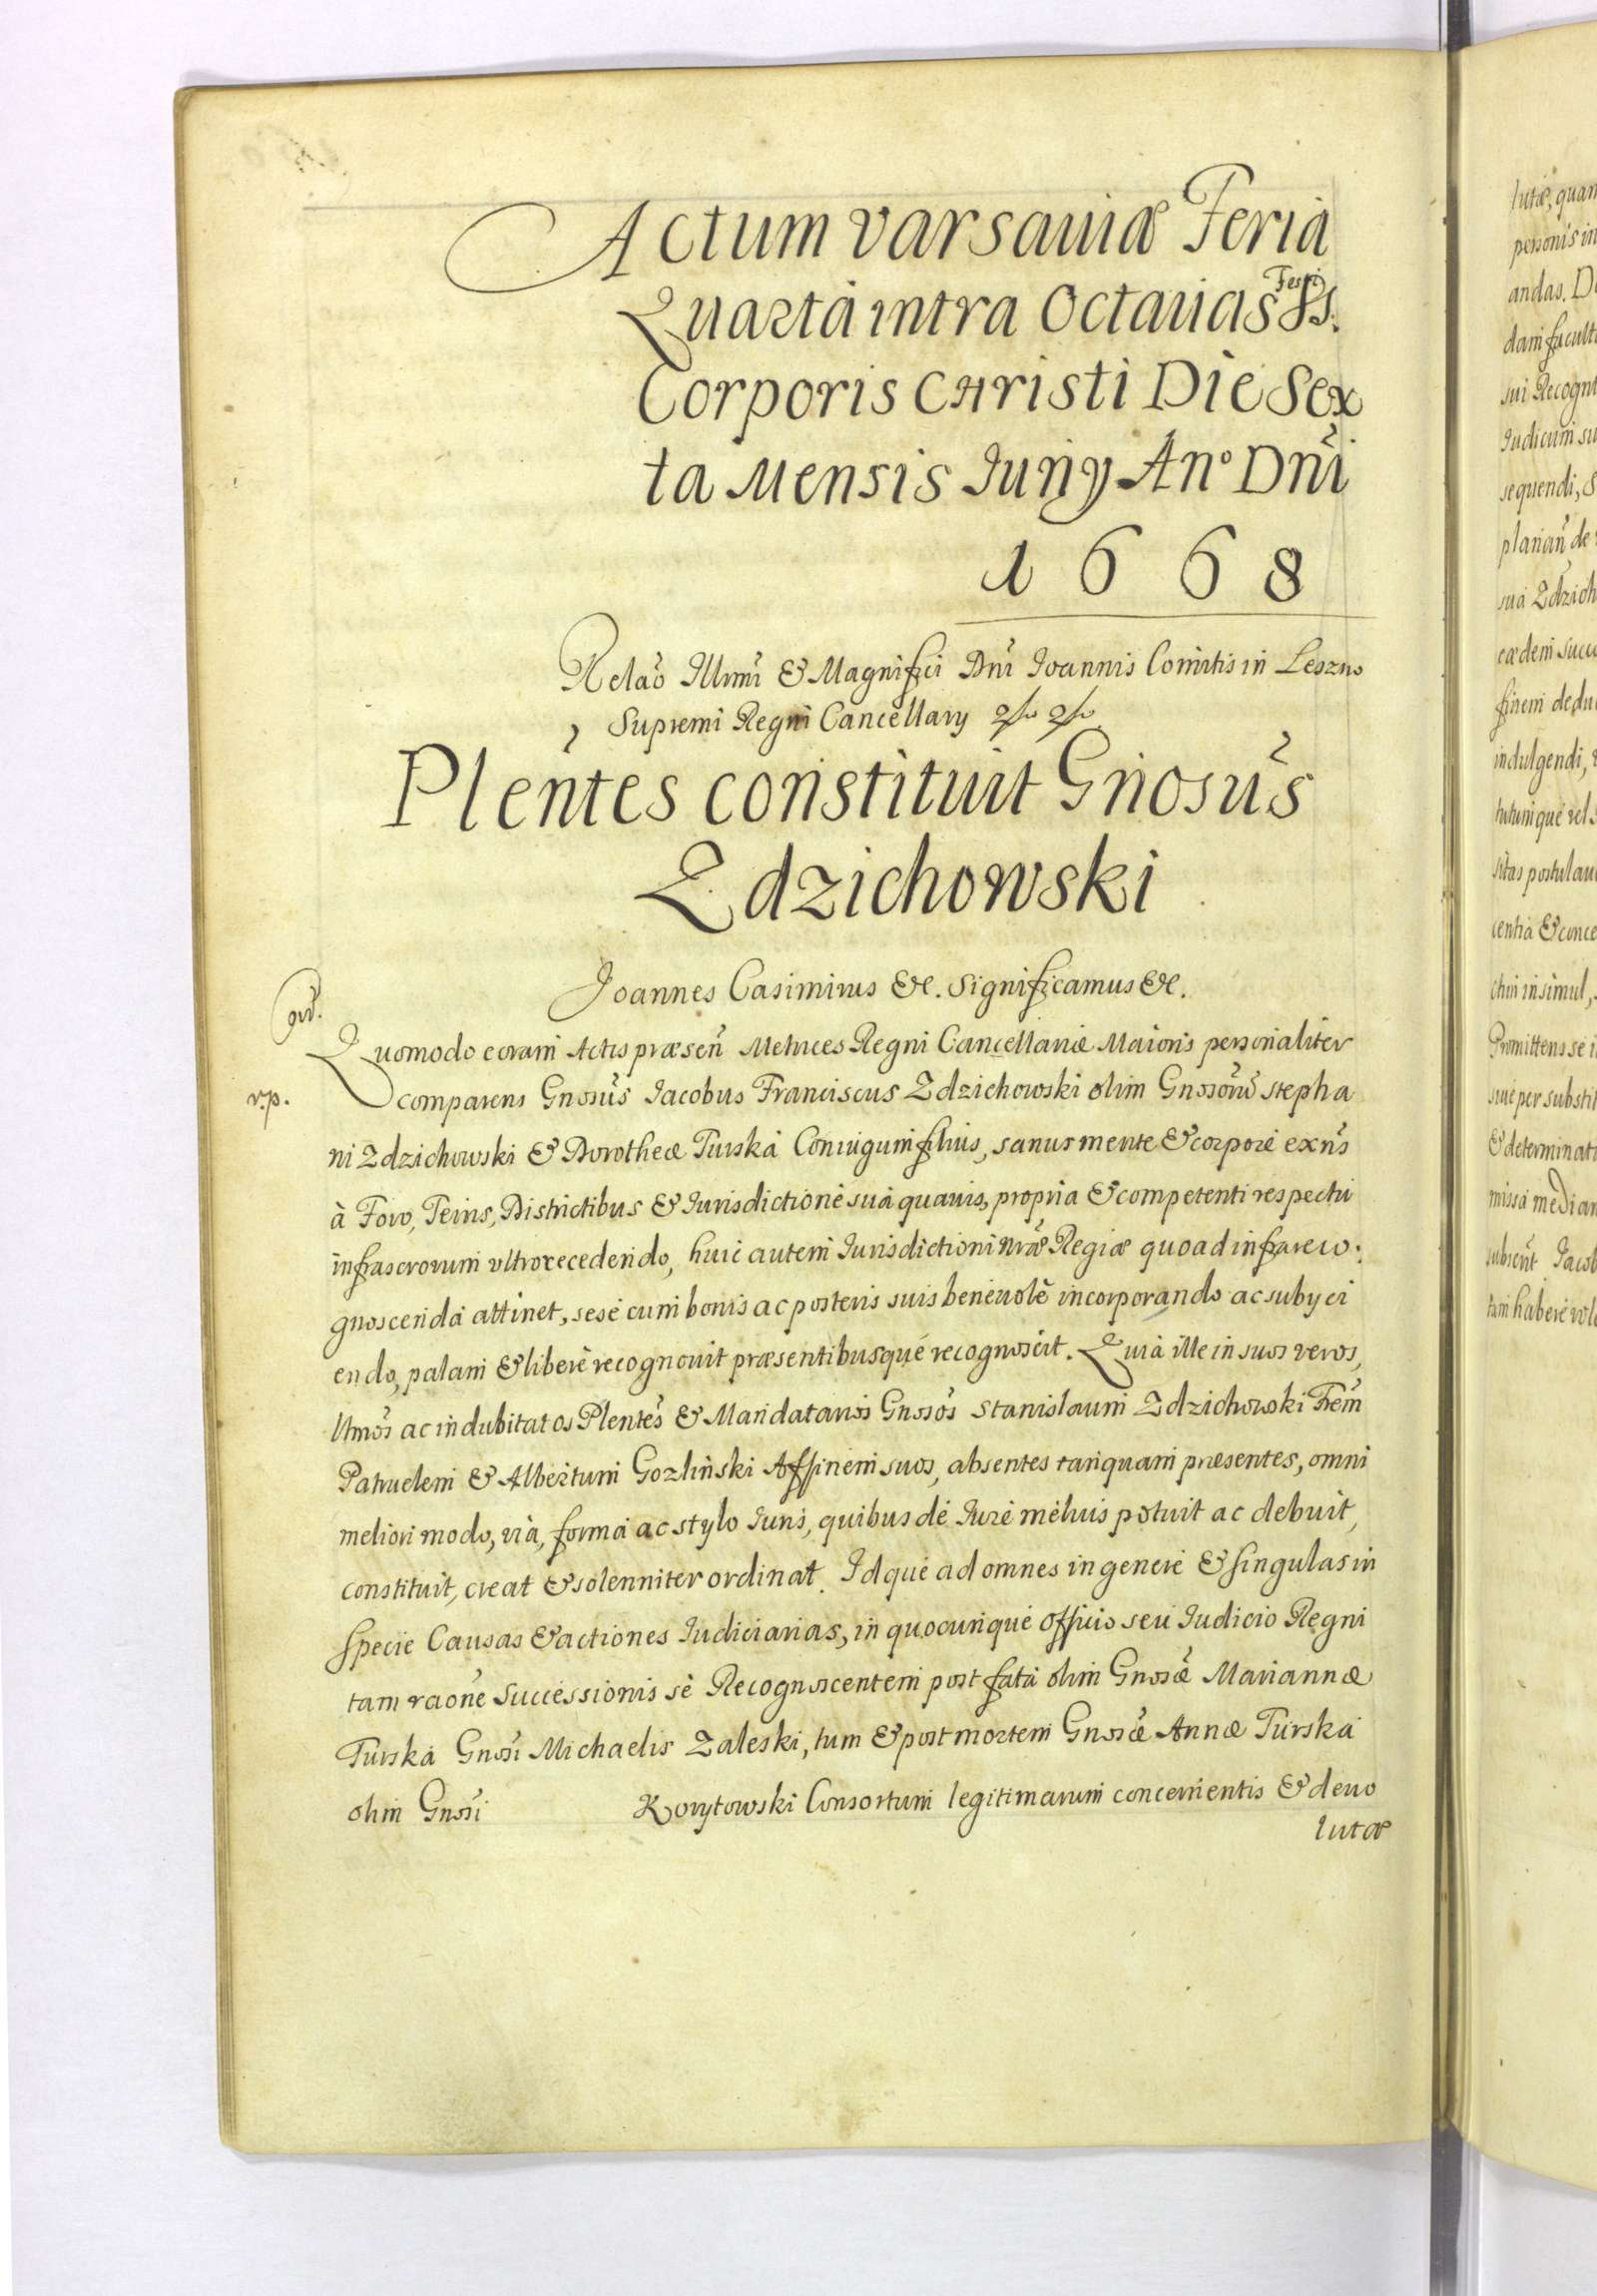 Actum Varsaviæ Feria
Quarta intra Octauas Festi Ss.
Corporis Christi Die Sex
ta Mensis Junÿ Anº Dñi
1668
Relaõ Illmi & Magnifici Dñi Joannis Comitis in Leszno
Supremi Regni Cancellarÿ
Plentes constituit Gnosus
Zdzichowski
Joannes Casimirus &c. Significamus &c.
Quomodo coram Actis præsen Metrices Regni Cancellariæ Maioris personaliter
r.p.
comparens Gnosus Jacobus Franciscus Zdzichowski olim Gnosorũ Stepha
ni Zdzichowski & Dorotheæ Turska Coniugum filius, sanus mente & corpore exñs
à Foro, Teris, Districtibus & Jurisdictione sua quauis, propria & competenti respectu
infrascrorum vltro recedendo, huic autem Jurisdictioni nræ Regiæ quo ad infra reco:
gnoscenda attinet, sese cum bonis ac posteris suis beneuolè incorporando ac subÿci
endo, palam & liberè recognouit præsentibusque recognoscit. Quia ille in suos veros,
ltmos ac indubitatos Plentes & Mandatarios Gnosos Stanislaum Zdzichowski Frem
Patruelem & Albertum Gozliński Affinem suos, absentes tanquam præsentes, omni
meliori modo, via, forma ac stylo Juris, quibus de Jure melius potuit ac debuit,
constituit, creat & solenniter ordinat. Idque ad omnes in genere & singulas in
specie Causas & actiones Judiciarias, in quocunque Officio seu Judicio Regni
tam raõne Successionis se Recognoscentem post fata olim Gnosæ Mariannæ
Turska Gnosi Michaelis Zaleski, tum & post mortem Gnosæ Annæ Turska
olim Gnosi Korytowski Consortum legitimarum concernentis & deuo
lutæ
lutæ, quam
personis in
andas. D
dam facult
sui Recogn
Judicium su
sequendi, S
sua Zdzich
eædem succ
finem dedu
indulgendi,
tutumque vel
sitas postulau
centia & conce
Promittens se i
siue per substit
& determinati
missa median
tum habere vol